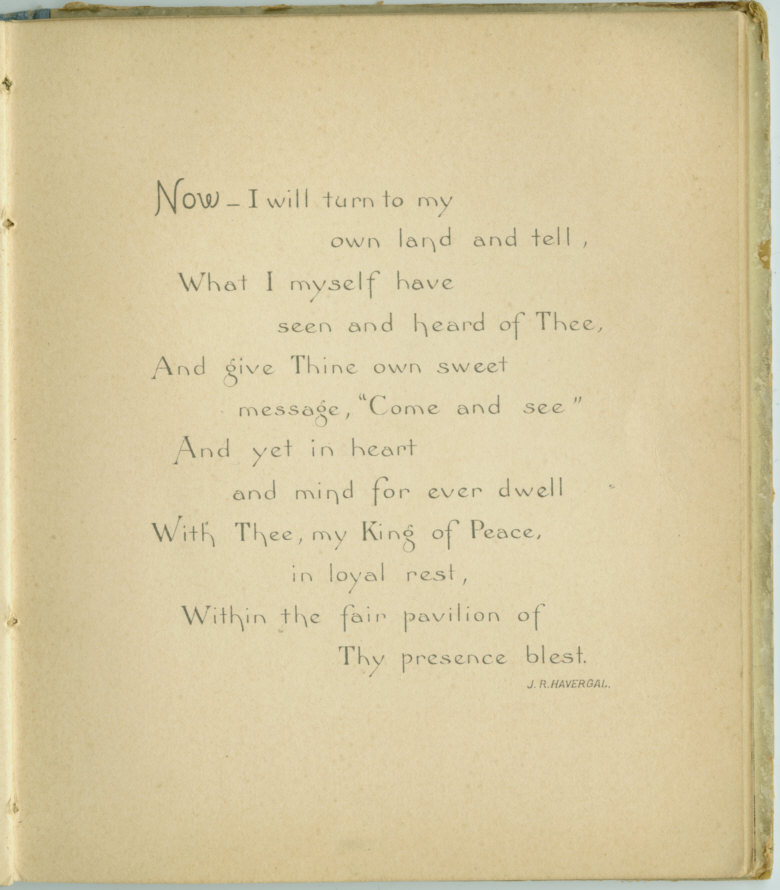 Now – I will turn to my
own land and tell,
What I myself have
seen and heard of Thee,
And give Thine own sweet
message, "Come and see"
And yet in heart
and mind for ever dwell
With Thee, my King of Peace,
in loyal rest,
Within the fair pavilion of
Thy presence blest.
J. R. HAVERGAL.